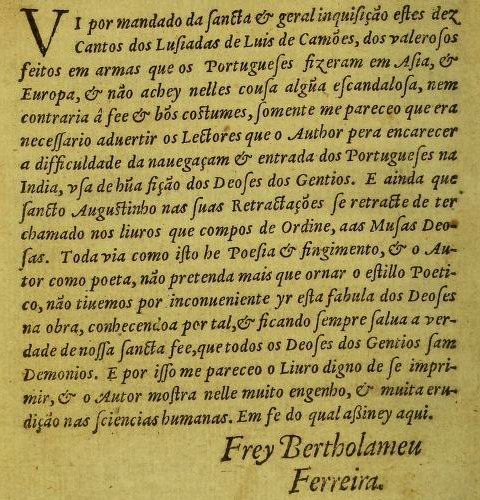 VI por mandado da ſancta & geral inquiſição eſtes dez
Cantos dos Luſiadas de Luis de Camões, dos valeroſos
feitos em armas que os Portugueſes fizeram em Aſia, &
Europa, & não achey nelles couſa algũa eſcandaloſa, nem
contraria â fee & bõs coſtumes, ſomente me pareceo que era
neceſſario aduertir os Lectores que o Author pera encarecer
a difficuldade da nauegaçam & entrada dos Portugueſes na
India, vſa de hũa fição dos Deoſes dos Gentios. E ainda que
ſancto Auguſtinho nas ſuas Retractações ſe retracte de ter
chamado nos liuros que compos de Ordine, aas Muſas Deo-
ſas. Toda via como iſto he Poeſia & fingimento, & o Au-
tor como poeta, não pretenda mais que ornar o eſtillo Poeti-
co, não tiuemos por inconueniente yr eſta fabula dos Deoſes
na obra, conhecendoa por tal, & ficando ſempre ſalua a ver-
dade de noſſa ſancta fee, que todos os Deoſes dos Gentios ſam
Demonios. E por iſſo me pareceo o Liuro digno de ſe impri-
mir, & o Autor moſtra nelle muito engenho, & muita eru-
dição nas ſciencias humanas. Em fe do qual aßiney aqui.
Frey Bertholameu
Ferreira.